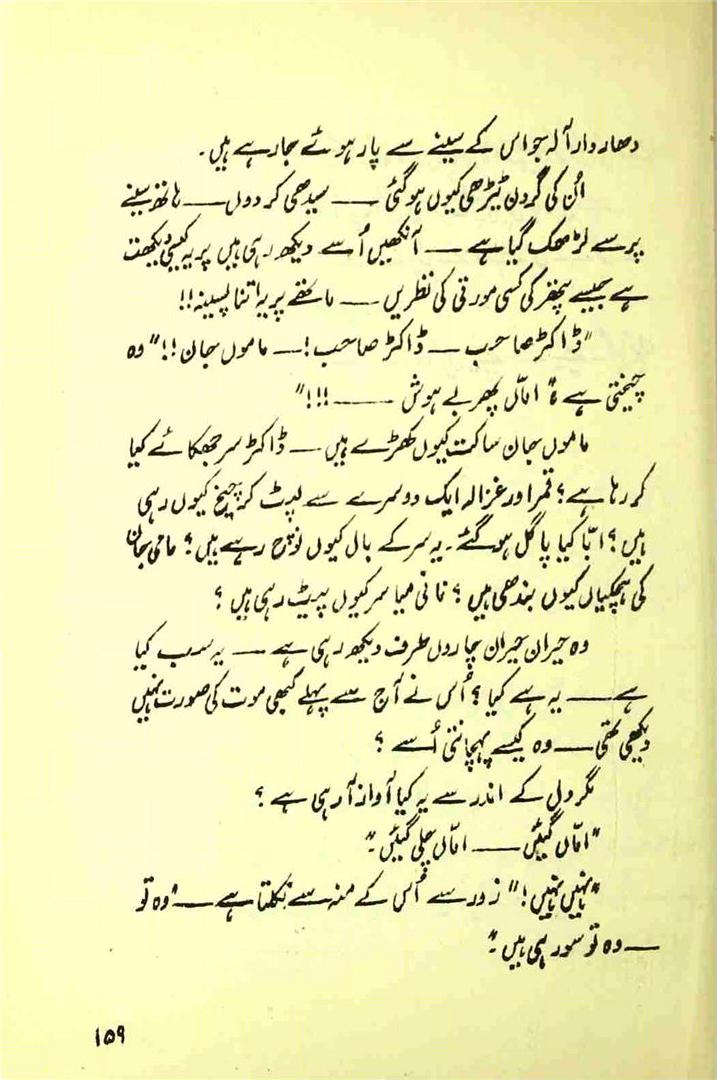 دھار دار آلہ جو اس کے سینے سے پار ہوئے جا رہے ہیں۔
اُن کی گردن ٹیڑھی کیوں ہو گئی — سیدھی کر دوں — ہاتھ سینے
پر سے لڑھک گیا ہے — آنکھیں اُسے دیکھ رہی ہیں پر یہ کیسی دیکھت
ہے جیسے پتھر کی کسی مورتی کی نظریں — ماتھے پر یہ اتنا پسینہ!!
"ڈاکٹر صاحب — ڈاکٹر صاحب! — ماموں جان!!" وہ
چیختی ہے "امّاں پھر بے ہوش — !!!"
ماموں جان ساکت کیوں کھڑے ہیں — ڈاکٹر سر جھکائے کیا
کر رہا ہے؟ قمر اور غزالہ ایک دوسرے سے لپٹ کر چیخ کیوں رہی
ہیں؟ ابّا کیا پاگل ہو گئے۔ یہ سر کے بال کیوں نوچ رہے ہیں؟ مامی جان
کی ہچکیاں کیوں بندھی ہیں؟ نانی میا سر کیوں پیٹ رہی ہیں؟
وہ حیران حیران چاروں طرف دیکھ رہی ہے — یہ سب کیا
ہے — یہ ہے کیا؟ اُس نے آج سے پہلے کبھی موت کی صورت نہیں
دیکھی تھی — وہ کیسے پہچانتی اُسے؟
مگر دل کے اندر سے یہ کیا آواز آ رہی ہے؟
"امّاں گئیں — امّاں چلی گئیں۔"
"نہیں نہیں!" زور سے اُس کے منہ سے نکلتا ہے — "وہ تو
— وہ تو سو رہی ہیں۔"
۱۵۹